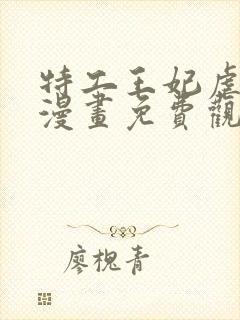 特工王妃虐
漫畫免費觀
廖槐青